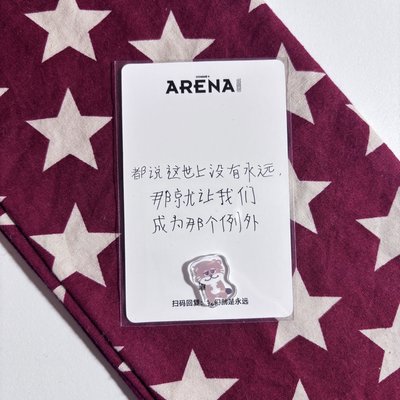 ARENA
都说这世上没有永远,
那就让我们
成为那个例外
扫码回复:
就是永远